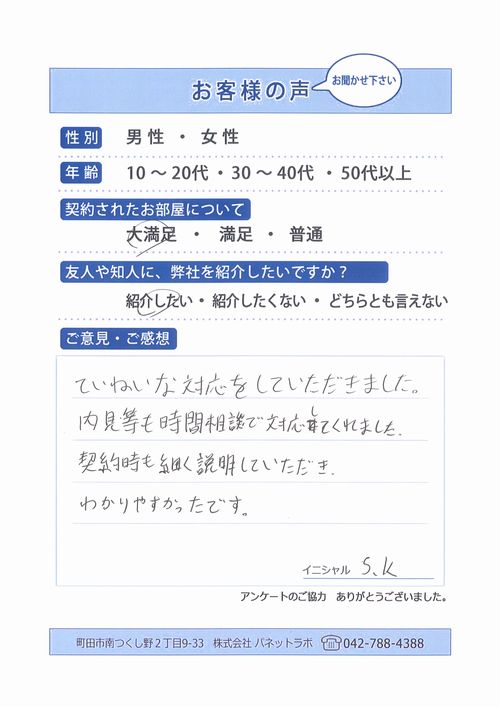 お客様の声
お聞かせ下さい
性別 男性 ・ 女性
年齢 10 〜 20代 ・ 30 〜 40代 ・ 50代以上
契約されたお部屋について
大満足 ・ 満足 ・ 普通
友人や知人に、弊社を紹介したいですか？
紹介したい ・ 紹介したくない ・ どちらとも言えない
ご意見・ご感想
ていねいな対応をしていただきました。
内見等も時間相談で対応してくれました。
契約時も細く説明していただき、
わかりやすかったです。
イニシャル S.K
アンケートのご協力 ありがとうございました。
町田市南つくし野２丁目9-33 株式会社 バネットラボ ☎042-788-4388